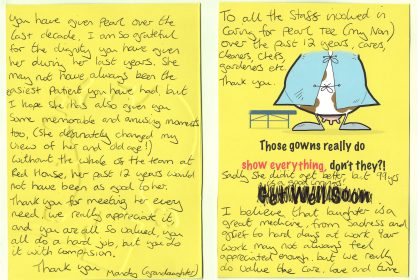 you have given Pearl over the
last decade, I am so grateful
for the dignity you have given
her during her last years. She
may not have always been the
easiest patient you have had, but
I hope she has also given you
some memorable and amusing moments
too, (she definately changed my
view of her and old age!)
Without the whole of the team at
Red House, her past 12 years would
not have been as good to her.
Thank you for meeting her every
need, we really appreciate it
and you are all so valued, you
all do a hard job, but you do
it with compassion.
Thank you Mandy (grandaughter)
To all the Staff involved in
Caring for Pearl Tee (my Nan)
over the past 12 years, carers,
cleaners, chefs,
gardeners etc
Thank you.
Those gowns really do
show everything, don't they?!
Sadly she didn't get better, but 99yrs
is a good innings
Get Well Soon
I believe that laughter is a
great medicine, from sadness and
grief to hard days at work. Your
work may not always feel
appreciated enough, but we really
do value the care, love and time